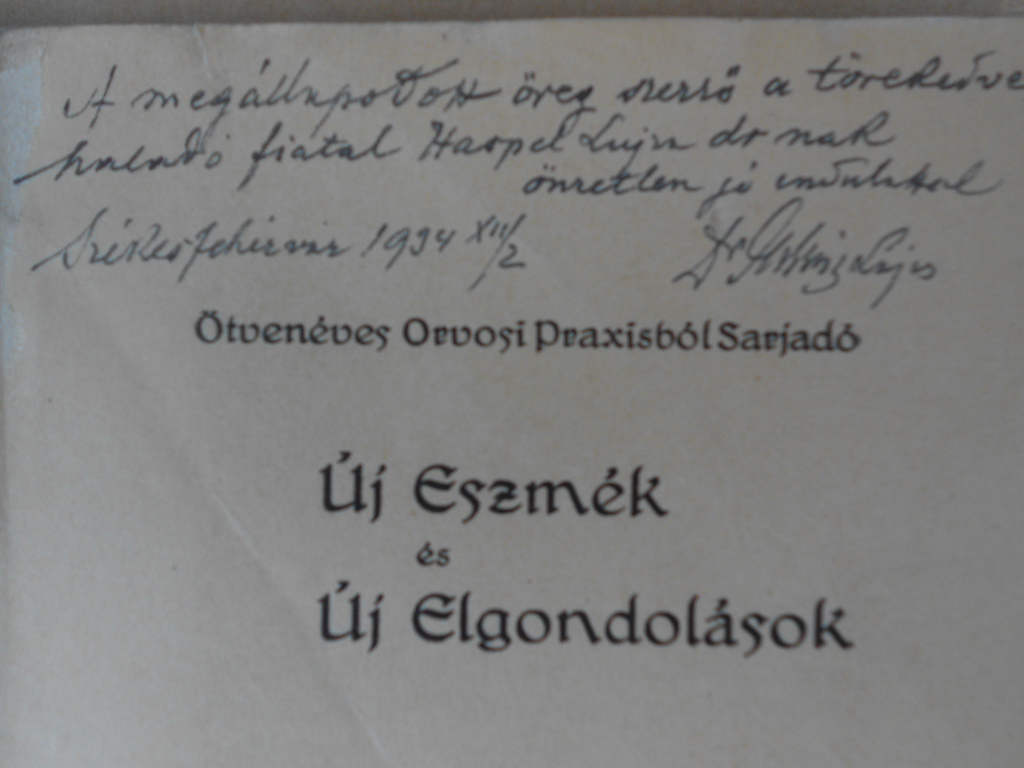 A megállapodott öreg szerző a törekedve
haladó fiatal Haspel Lujza dr nak
önzetlen jó indulattal
Székesfehérvár 1934 XII/2
Dr Lajos
Ötvenéves Orvosi Praxisból Sarjadó
Új Eszmék
és
Új Elgondolások